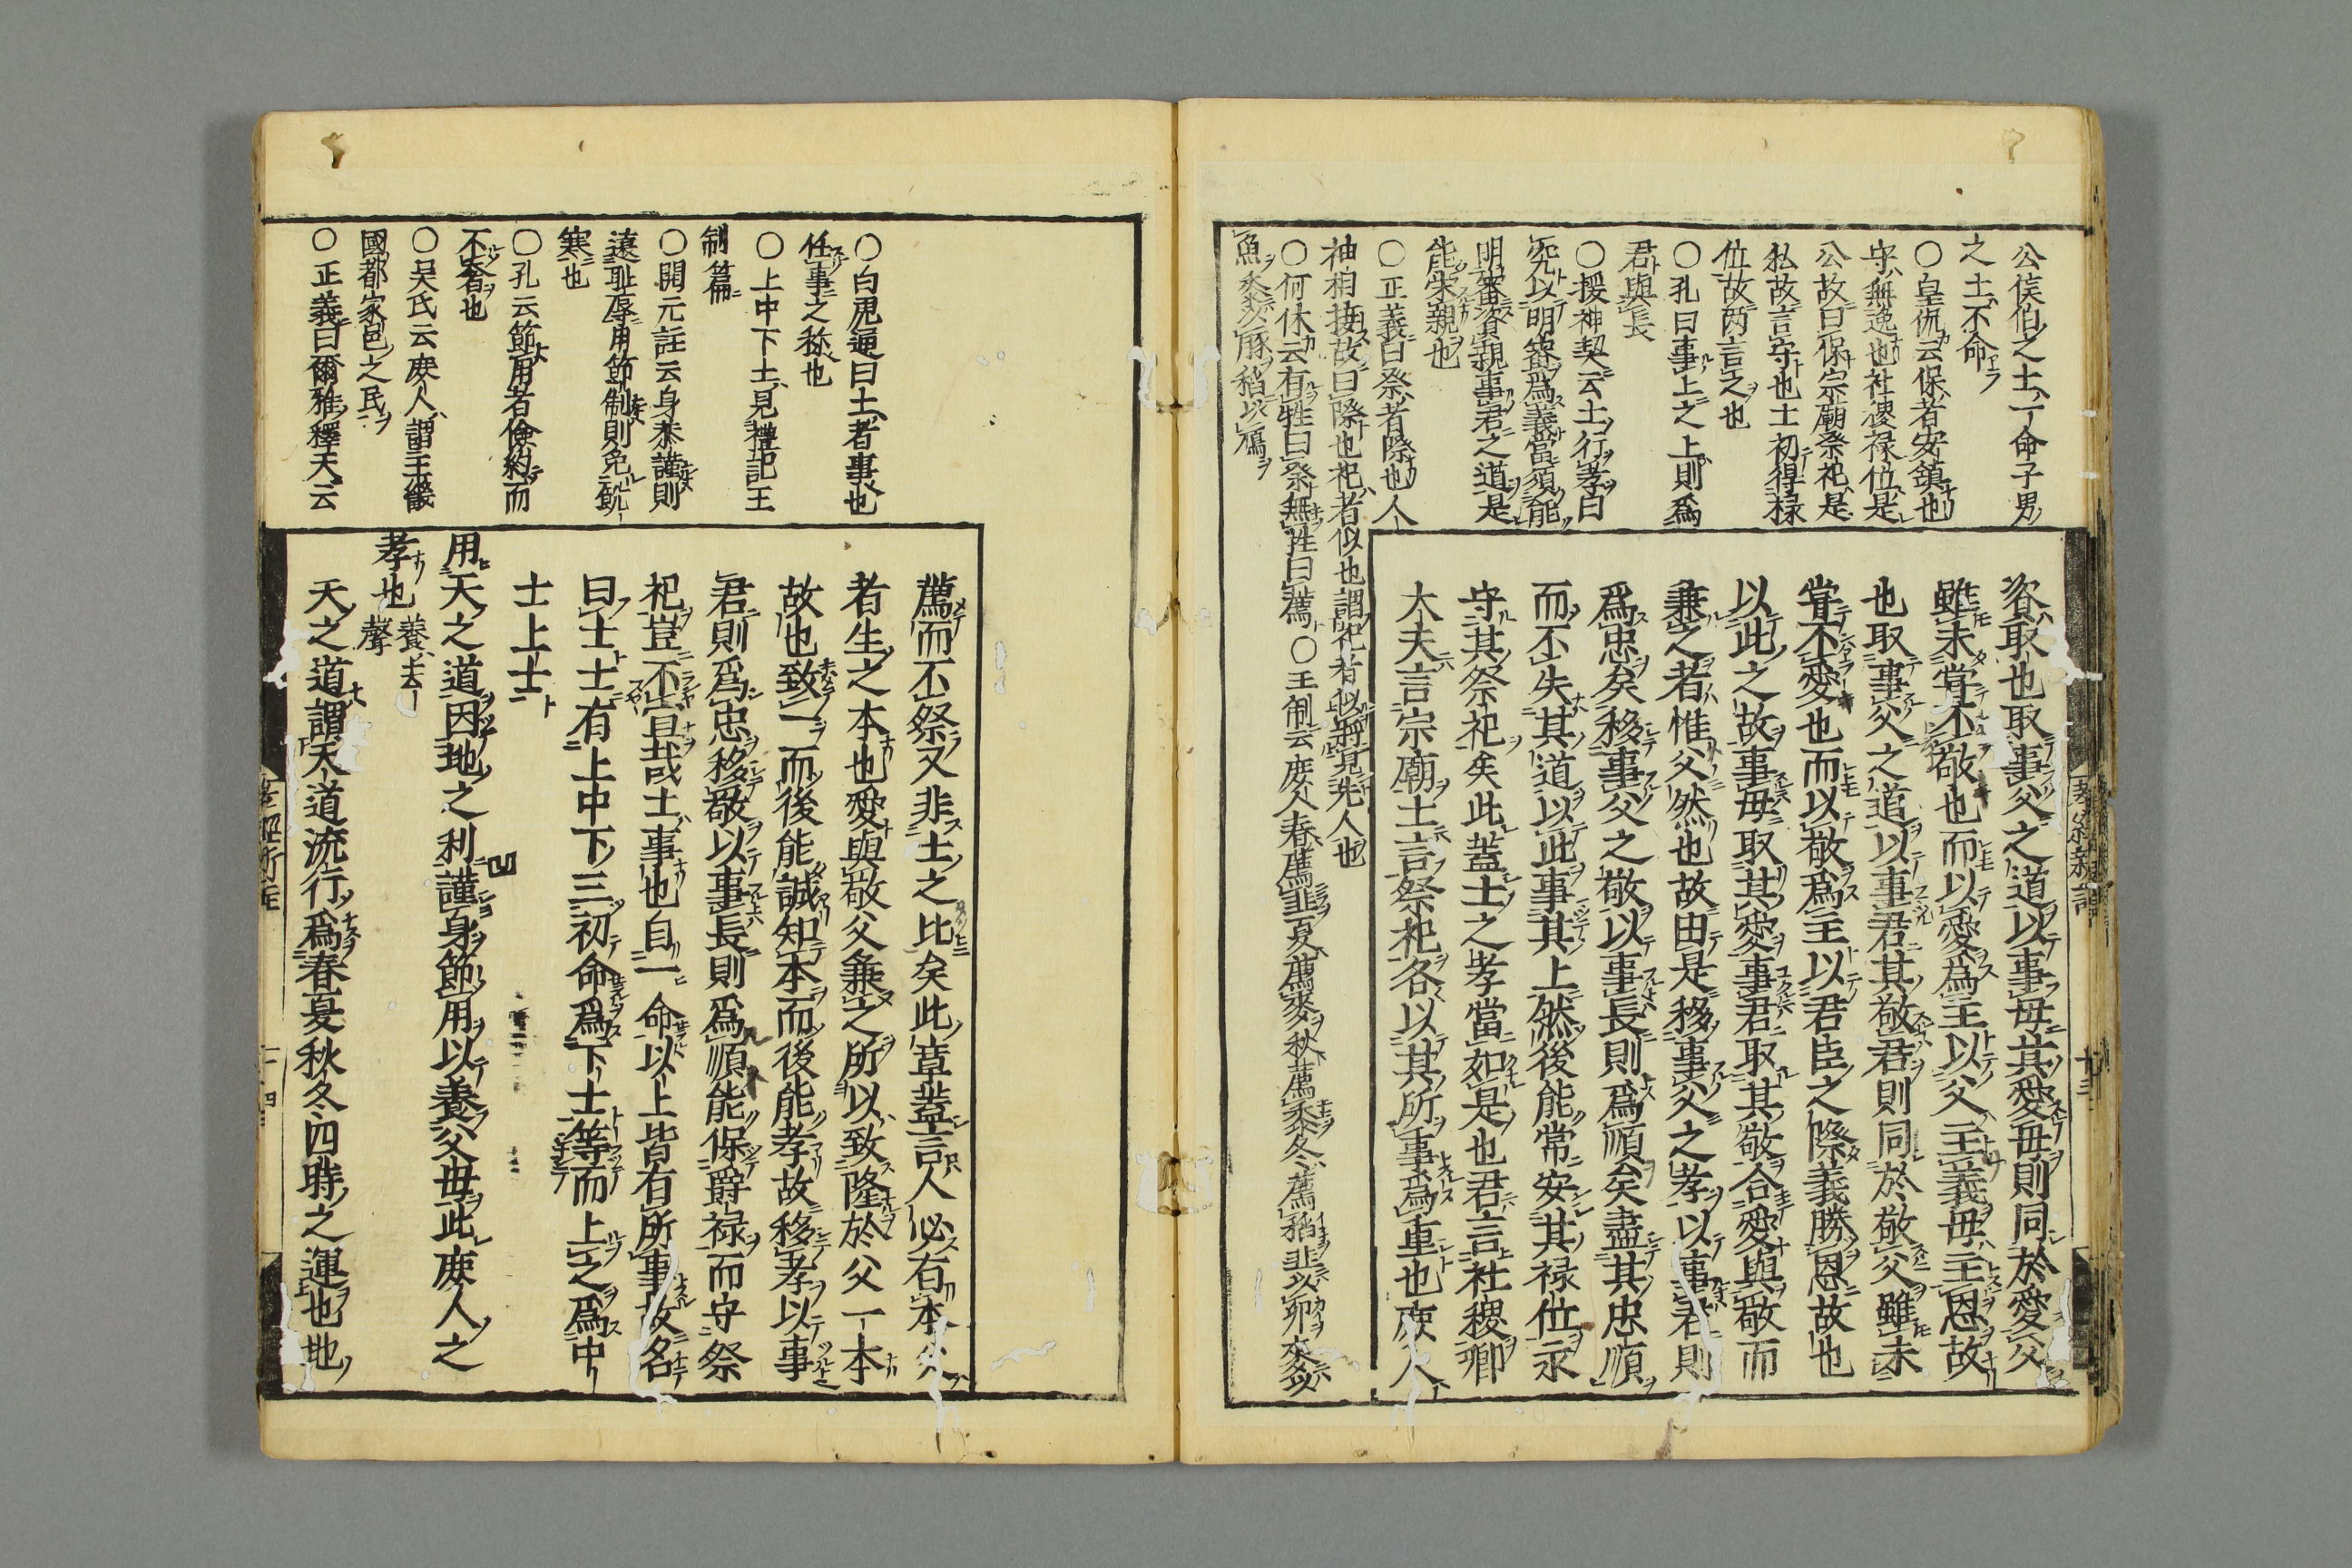 公侯伯之士一命子男
之士不命
○皇侃云保者安鎮也
守無逸也社稷祿位是
公故曰保宗廟祭祀是
私故言守也士初得祿
位故兩言之也
○孔曰事上之上則爲
君與長
○援神契云士行孝曰
究以明審爲義當須能
明審資親事君之道是
能榮親也
○正義曰祭者際也人
神相接故曰際也祀者似也謂祀者似將見先人也
○何休云有牲曰祭無牲曰薦○王制云庶人春薦韭夏薦麥秋薦黍冬薦稻韭以卵麥以
魚黍以豚稻以鴈
資取也取事父之道以事母其愛母則同於愛父
雖未嘗不敬也而以愛爲主以父主義母主恩故
也取事父之道以事君其敬君則同於敬父雖未
嘗不愛也而以敬爲主以君臣之際義勝恩故也
以此之故事母取其愛事君取其敬合愛與敬而
兼之者惟父然也故由是移事父之孝以事君則
爲忠矣移事父之敬以事長則爲順矣盡其忠順
而不失其道以此事其上然後能常安其祿位永
守其祭祀矣此蓋士之孝當如是也君言社稷卿
大夫言宗廟士言祭祀各以其所事爲重也庶人
孝經新註
○白虎通曰士者事也
任事之稱也
○上中下士見禮記王
制篇
○開元註云身恭謹則
遠恥辱用節制則免飢
寒也
○孔云節用者儉約而
不奢也
○吳氏云庶人謂王畿
國都家邑之民
○正義曰爾雅釋天云
薦而不祭又非士之比矣此章蓋言人必有本父
者生之本也愛與敬父兼之所以致隆於父一本
故也致一而後能誠知本而後能孝故移孝以事
君則爲忠移敬以事長則爲順能保爵祿而守祭
祀豈不宜哉士事也自一命以上皆有所事故名
曰士士有上中下三初命爲下士等而上之爲中
士上士
用天之道因地之利謹身節用以養父母此庶人之
孝也 養去聲
天之道謂天道流行爲春夏秋冬四時之運也地